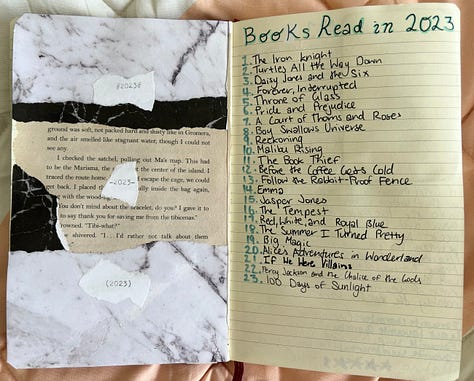 #2023#
ground was soft, not packed hard and dusty like in Gromera,
and the air smelled like stagnant water, though I could not
see any.
I checked the satchel, pulling out Ma's map. This had
to be the Marisma, the at the center of the island. I
traced the route home. escape the rage, we could
get back. I placed it ally inside the bag again,
with the wood-
"You don't mind about the bracelet, do you? I gave it to
to say thank you for saving me from the tibicenas."
owned. "Tibi-what?"
shivered. "I... I'd rather not talk about them
~2023~
(2023)
Books Read in 2023
1. The Iron Knight
2. Turtles All the Way Down
3. Daisy Jones and the Six
4. Forever, Interrupted
5. Throne of Glass
6. Pride and Prejudice
7. A Court of Thorns and Roses
8. Boy Swallows Universe
9. Reckoning
10. Malibu Rising
11. The Book Thief
12. Before the Coffee Gets Cold
13. Follow the Rabbit-Proof Fence
14. Emma
15. Jasper Jones
16. The Tempest
17. Red, White, and Royal Blue
18. The Summer I Turned Pretty
19. Big Magic
20. Alice's Adventures in Wonderland
21. If We Were Villains
22. Percy Jackson and the Chalice of the Gods
23. 100 Days of Sunlight